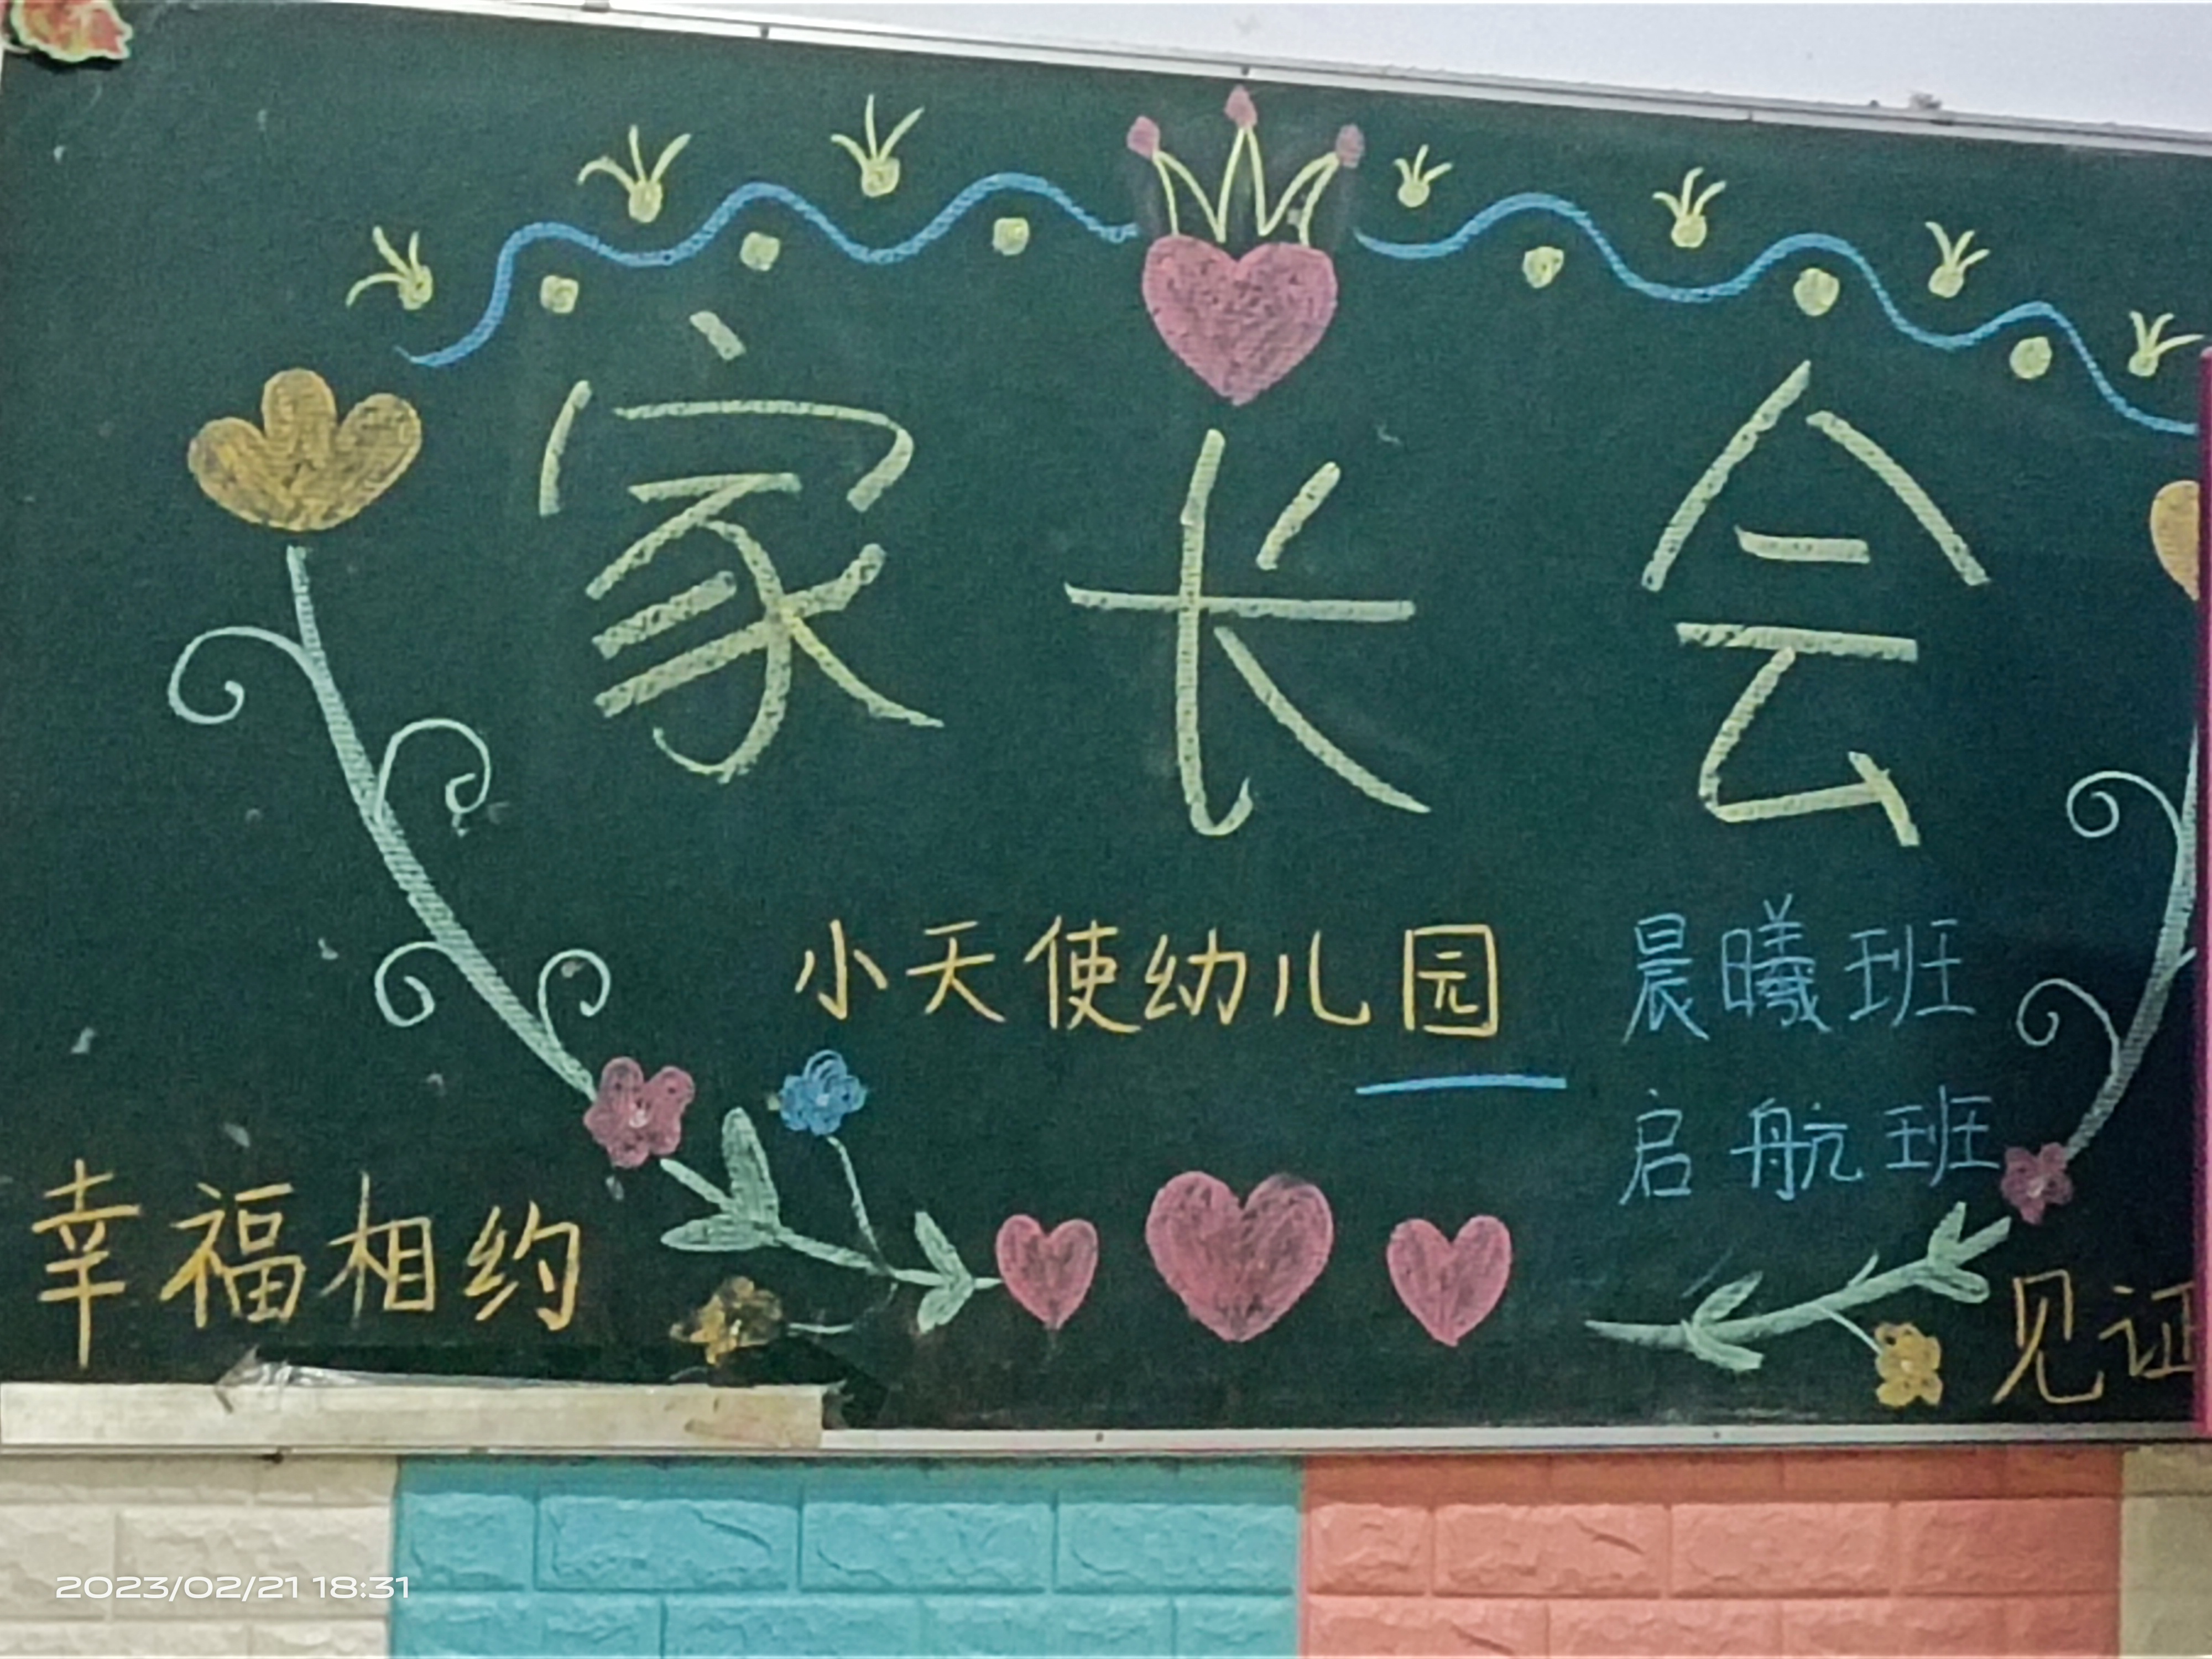 家长会
小天使幼儿园
晨曦班
启航班
幸福相约
见证
2023/02/21 18:31